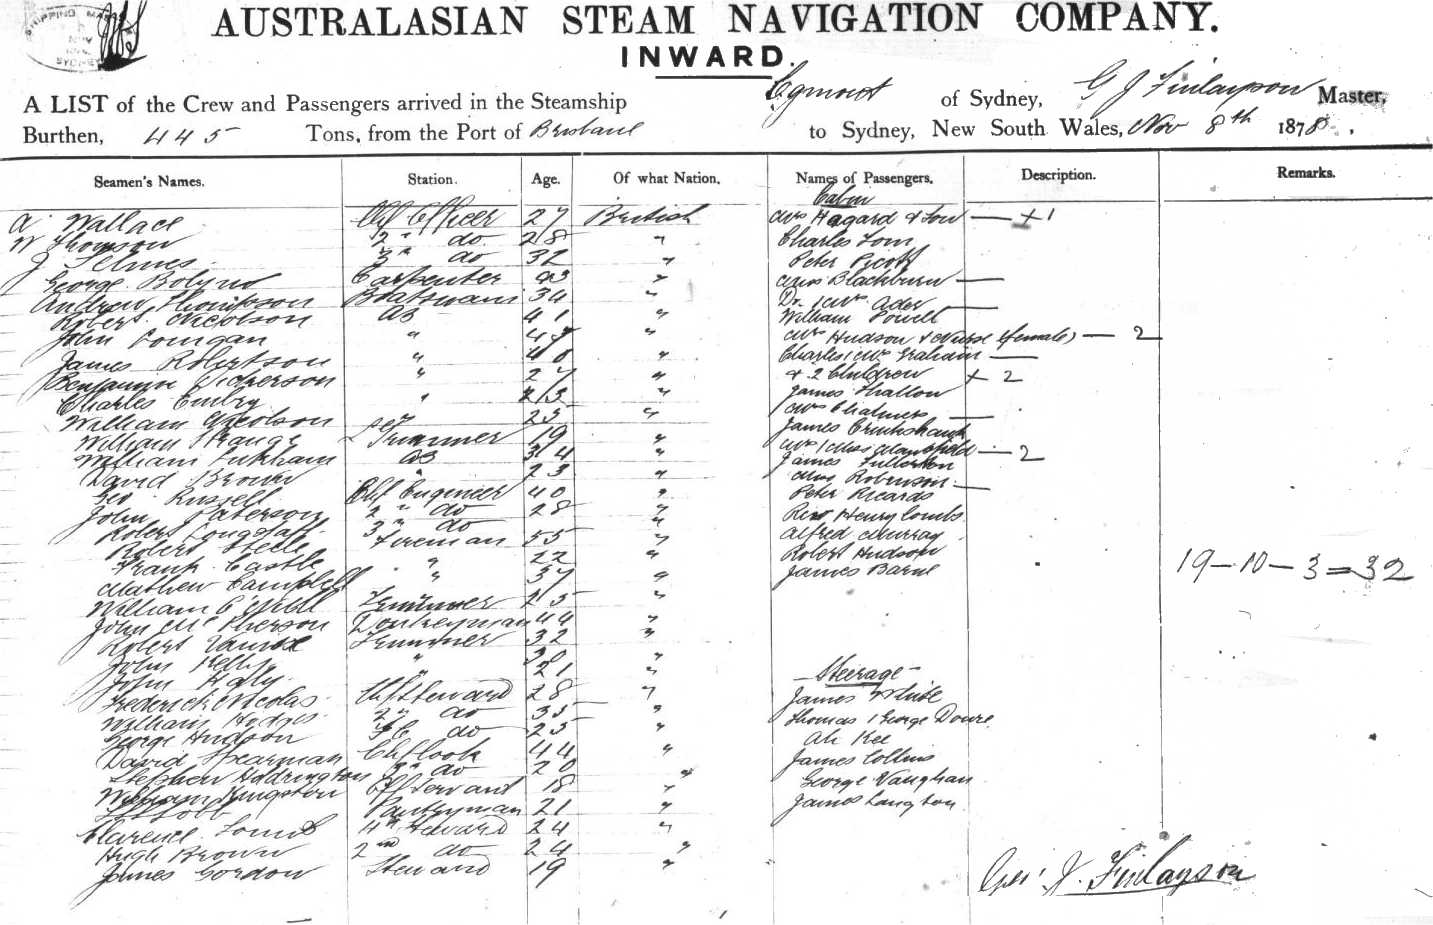 SHIPPING MASTER
SYDNEY
AUSTRALASIAN STEAM NAVIGATION COMPANY.
INWARD.
A LIST of the Crew and Passengers arrived in the Steamship Egmont of Sydney, G J Finlayson Master,
Burthen, 445 Tons, from the Port of Brisbane to Sydney, New South Wales, Nov 8th 1878.
Seamen's Names. Station. Age. Of what Nation. Names of Passengers. Description. Remarks.
Cabin
A Wallace Chf Officer 27 British Mrs Hagard & Son — + 1
W Thomson 2" do 28 " Charles Tom
J Selmes 3" do 32 " Peter Picott
George Carpenter 43 " Mrs Blackburn —
Andrew Thompson Boatswain 34 " Dr. / Mrs Ader —
Robert Nicolson AB 41 " William Powell
John " " Mrs Hudson & Nurse (female) — 2
James Robertson " 40 " Charles / Mrs Graham —
Benjamin Dickerson " 27 " & 2 Children + 2
Charles Embry " " James Shallow
William Nicolson 25 " Mrs Chalmers —
William Strange Trimmer 19 " James Cruikshank
William AB 34 " Mrs / Miss Mansfield — 2
David Brown " 23 " James Fullerton
Geo Russell Chf Engineer 40 " Robinson —
John Paterson 2" do 28 " Peter Ricards
Robert Longstaff 3" do " Rev Henry Combs
Robert Steele Fireman 55 " Alfred Murray
Frank Castle " 22 " Robert Hudson
Mathew Campbell " 37 " James Barne
19 — 10 — 3 = 32
William O'Neill Trimmer 25 "
John McPherson Donkeyman 44 "
Robert Trimmer 32 "
John Kelly " "
John Haly " 21 " Steerage
Frederick Nicolas Chf Steward 28 " James White
William Hodges 2" do 35 " Thomas / George Doure
George Hudson do 25 " Ah Kee
David Spearman Chf Cook 44 " James Collins
Stephen Hodrington 2" do 20 " George Vaughan
William Kingston Servant 18 " James Langton
Pantryman 21 "
Clarence 4th Steward 24 "
Hugh Brown 2nd do 24 "
James Gordon Steward 19 "
Geo: J. Finlayson